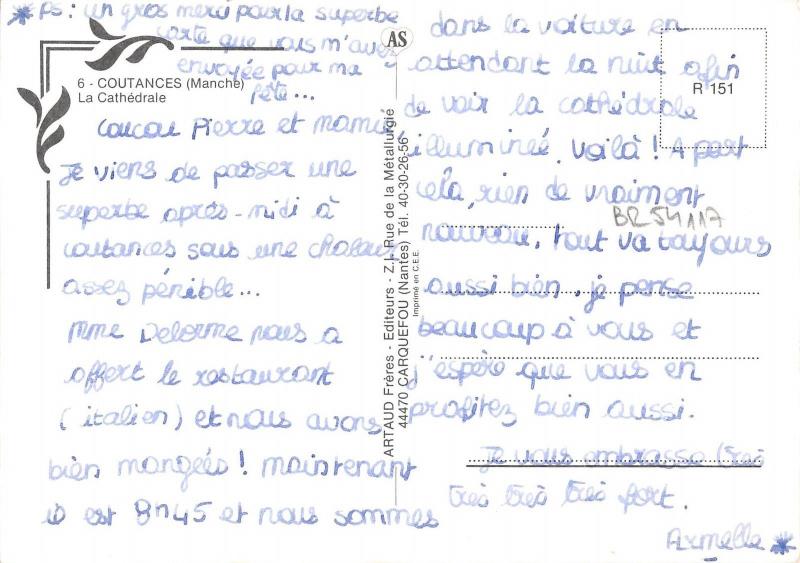 *PS : un gros merci pour la superbe
carte que vous m'avez
envoyée pour ma
fête...
6 - COUTANCES (Manche)
La Cathédrale
Coucou Pierre et mamie
Je viens de passer une
superbe après-midi à
coutances sous une chaleur
assez pénible...
Mme Delorme nous a
offert le restaurant
(italien) et nous avons
bien mangées! maintenant
il est 8h45 et nous sommes
AS
ARTAUD Frères - Editeurs - Z.I. Rue de la Métallurgie
44470 CARQUEFOU (Nantes) Tél. 40-30-26-56
Imprimé en C.E.E.
R 151
dans la voiture en
attendant la nuit afin
de voir la cathédrale
illuminée. Voilà! A part
cela, rien de vraiment
nouveau, tout va toujours
aussi bien, je pense
beaucoup à vous et
j'espère que vous en
profitez bien aussi.
Je vous embrasse très
très très très fort.
Armelle *
BR54117